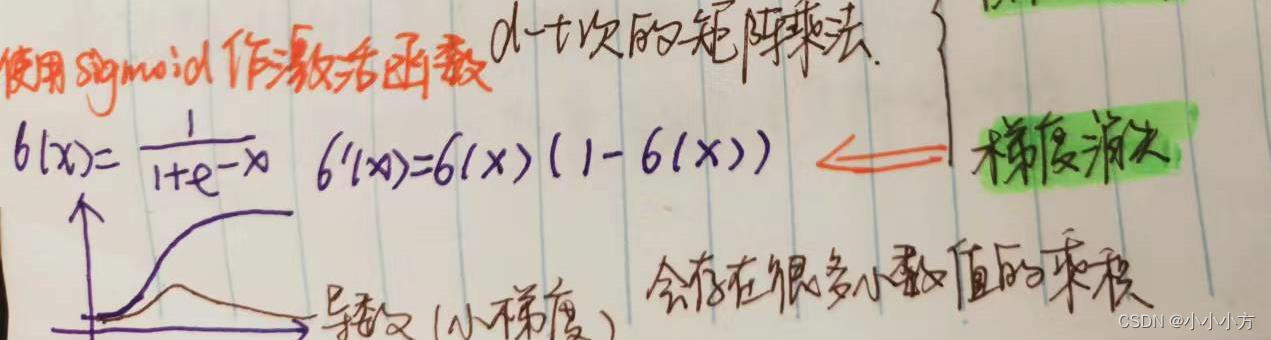 d-t次的矩阵乘法.
使用sigmoid作激活函数
6(x)= 1/(1+e-x) 6'(x)=6(x)(1-6(x))
梯度消失
会存在很多小数值的乘积
导数(小梯度)
CSDN @小小小方